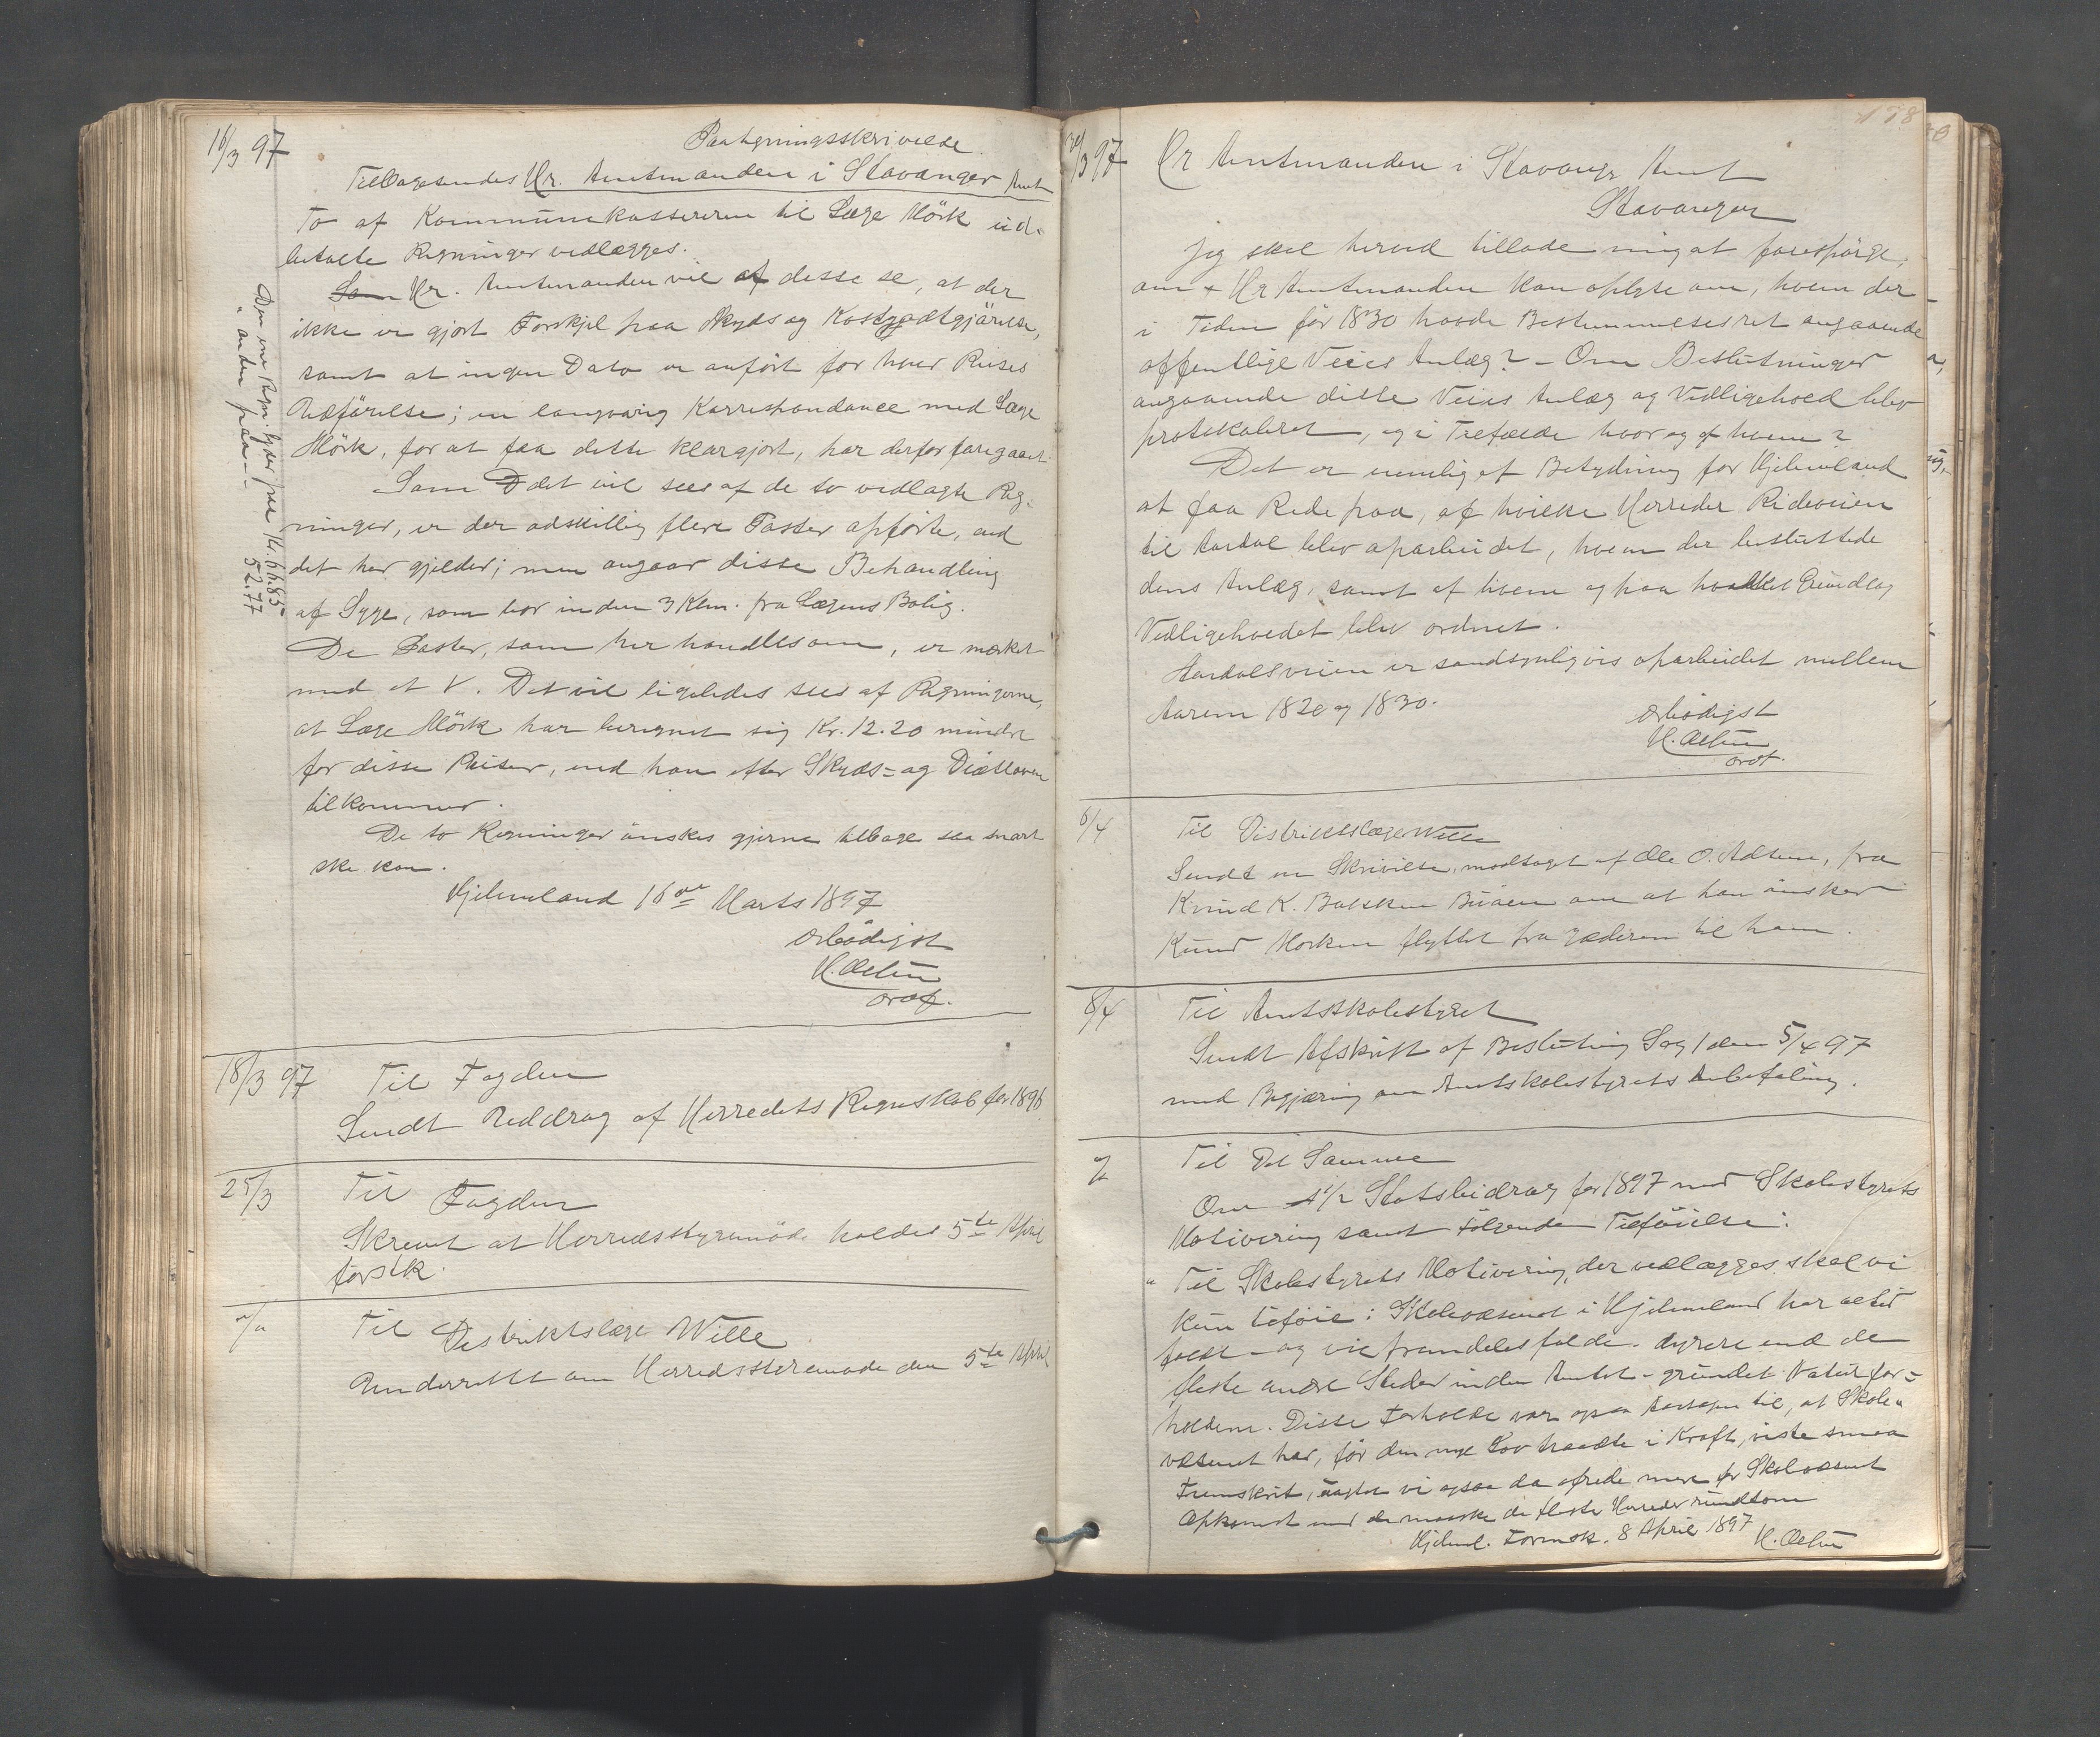 16/3 97
Paategningsskrivelse
Tilbagesendes Hr. Amtmanden i Stavanger Amt
To af Kommunekassereren til Læge Mörk ud-
betalte Regninger vedlægges.
Som Hr. Amtmanden vil af disse se, at der
ikke er gjort Forskjel paa Skyds og Kostgodtgjörelse,
samt at ingen Dato er anfört for hver Reises
Udförelse; en langvarig Korrespondance med Læge
Mörk, for at faa dette klargjort, har derfor foregaaet.
Som det vil sees af de to vedlagte Reg-
ninger, er der adskillig flere Poster opförte, end
det her gjelder; men angaar disse Behandling
af Syge, som bor inden 3 Klm. fra Lægens Bolig.
De Poster, som her handles om, er mærket
med et V. Det vil ligeledes sees af Regningerne,
at Læge Mörk har beregnet sig Kr. 12.20 mindre
for disse Reiser, end han efter Skyds- og Diætloven
tilkommer.
De to Regninger önskes gjerne tilbage saa snart
ske kan.
Hjelmeland 16de Marts 1897
Ærbödigst
H.
ordf.
Den ene Regn. lyder paa Kr. 66.85
" anden paa — " — 52.77
18/3 97
Til Fogden
Sendt Uddrag af Herredets Regnskab for 1896
25/3
Til Fogden
Skrevet at Herredsstyremöde holdes 5te April
förstk.
"/"
Til Distriktslæge Wille
Underrettet om Herredsstyremöde den 5te April
178
30/3 97
Hr Amtmanden i Stavanger Amt
Stavanger
Jeg skal herved tillade mig at forespörge,
om Hr Amtmanden kan oplyse om, hvem der
i Tiden för 1830 havde Bestemmelsesret angaaende
offentlige Veies Anlæg? - Om Beslutninger
angaaende disse Veies Anlæg og Vedligehold blev
protokoleret, og i Tilfælde hvor og af hvem?
Det er nemlig af Betydning for Hjelmeland
at faa Rede paa, af hvilke Herreder Rideveien
til Aardal blev oparbeidet, hvem der besluttede
dens Anlæg, samt af hvem og paa hvilket Grundlag
Vedligeholdet blev ordnet.
Aardalsveien er sandsynligvis oparbeidet mellem
Aarene 1820 og 1830.
Ærbödigst
H.
ordf.
6/4
Til Distriktslæge Wille
Sendt en Skrivelse, modtaget af Ole O. , fra
Knud K. om at han önsker
Knud flyttet fra Jæderen til ham.
8/4
Til Amtsskolestyret
Sendt Afskrift af Beslutning Sag 1 den 5/4 97
med Begjæring om Amtskolestyrets Anbefaling.
"/"
Til Det Samme
Om Statsbidrag for 1897 med Skolestyrets
Motivering samt fölgende Tilföielse:
" Til Skolestyrets Motivering, der vedlægges skal vi
kun tilföie: Skolevæsenet i Hjelmeland har altid
faldt - og vil fremdeles falde - dyrere end de
fleste andre Steder inden Amtet - grundet Naturfor-
holdene. Disse Forholde var ogsaa Aarsagen til, at Skole-
væsenet her, för den nye Lov traadte i Kraft, viste smaa
Fremskrit, uagtet vi ogsaa da ofrede mere for Skolevæsenet
Opkomst end de maaske de fleste Herreder rundtom
Hjelmel. Formsk. 8 April 1897 H.